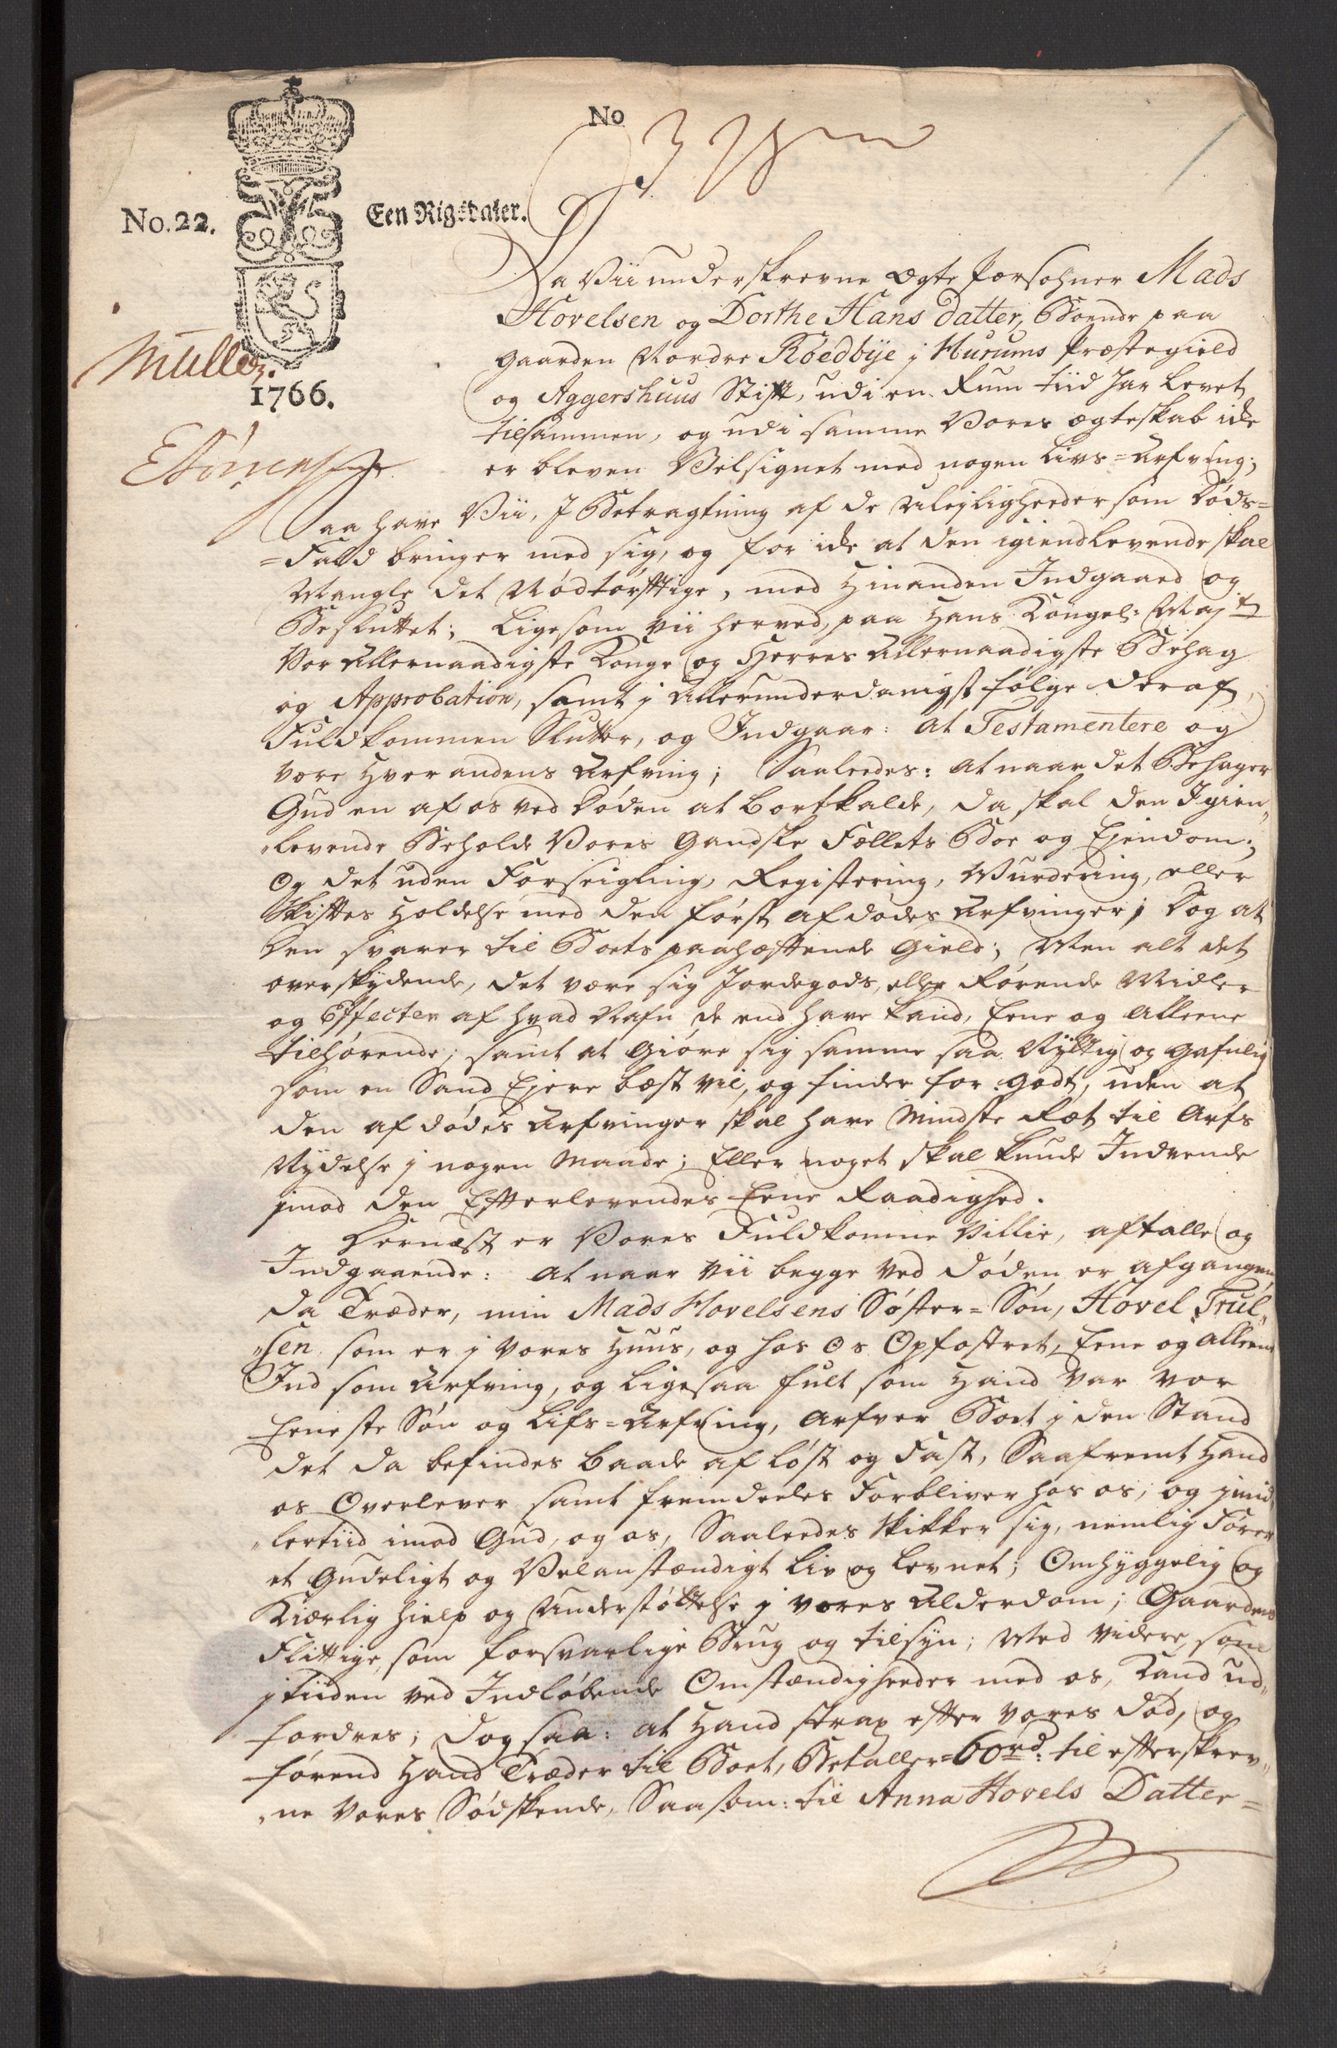 No
No. 22.
Een Rigsdaler.
Müller.
1766.
Da Vii underskrevne Ægte Persohner Mads
Hovelsen og Dorthe Hans datter, Boende paa
gaarden Nordre Röedbÿe j Hurums Præstegield
og Aggershuus Stift, udi en Rum tiid har levet
tilsammen, og udi samme Vores ægteskab ide
er bleven Velsignet med nogen Livs=Arfving;
Saa have Vii, J Betragtning af de Uleyligheeder som Døds=
=Fald bringer med sig, og for ide at den igienlevende skal
Mangle det Nødtørfftige, med Hinanden Indgaaed og
Besluttet; Ligesom vii herved, paa Hans Kongel: Majts
Vor Allernaadigste Konge og Herres Allernaadigste Behag
og Approbation, samt j Allerunderdanigst følge deraf,
Fuldkommen Slutter, og Indgaar: at Testamentere og
være Hverandens Arfving; Saaleedes: at naar det Behager
Gud en af os ved Døden at Bortkalde, da skal den Igien„
„levende Beholde Vores Gandske Fælleds Boe og Ejendom;
og det uden Forseigling, Registering, Wurdering, eller
Skifftes Holdelse med den først afdødes Arfvinger; Dog at
den svarer til Boets paahæfftende Gield; Men alt det
overskydende, det være sig Jordegods, eller Rørende Midler
og Effecter af hvad Nafn de end have kand, Eene og Alleene
tilhørende; samt at Giøre sig samme saa Nyttig og gafnlig
som en Sand Ejere bæst vil, og finder for godt, uden at
den afdødes Arfvinger skal have Mindste Ræt til Arfs
Nydelse j nogen Maade; Eller noget skal kunde Indvende
jmod den Efterlevendes Eene Raadighed.
Dernæst er Vores Fuldkomne Villie, aftalle og
Indgaaende: at naar vii begge ved døden er afgangen,
da Træder, min Mads Hovelsens Søster=Søn, Hovel Trul„
„sen som er j vores Huus, og hos os Opfostret, Eene og alleene
Ind som Arfving, og ligesaa fult som Hand var vor
Eeneste Søn og Lifs=Arfving, Arfver Boet j den Stand
det da befindes baade af løst og Fast, Saafremt Hand
os Overlever samt fremdeeles Forbliver hos os; og jmid„
„lertiid imod Gud, og os, Saaleedes skikker sig, nemlig Fører
et Gudeligt og Velanstændigt liv og levnet; Omhyggelig og
Kiærlig hielp og Understøttelse j vores Alderdom; Gaardens
Flittige, som forsvarlige Brug og tilsyn; Med videre, som
j tiiden ved Indløbende Omstændigheeder med os, kand ud„
fordres; dog saa: at Hand strax efter vores død, og
førend Hand Træder til Boet, Betaller=60rd: til efterskrev„
„ne vores Sødskende, Saasom: til Anna Hovels Datter=